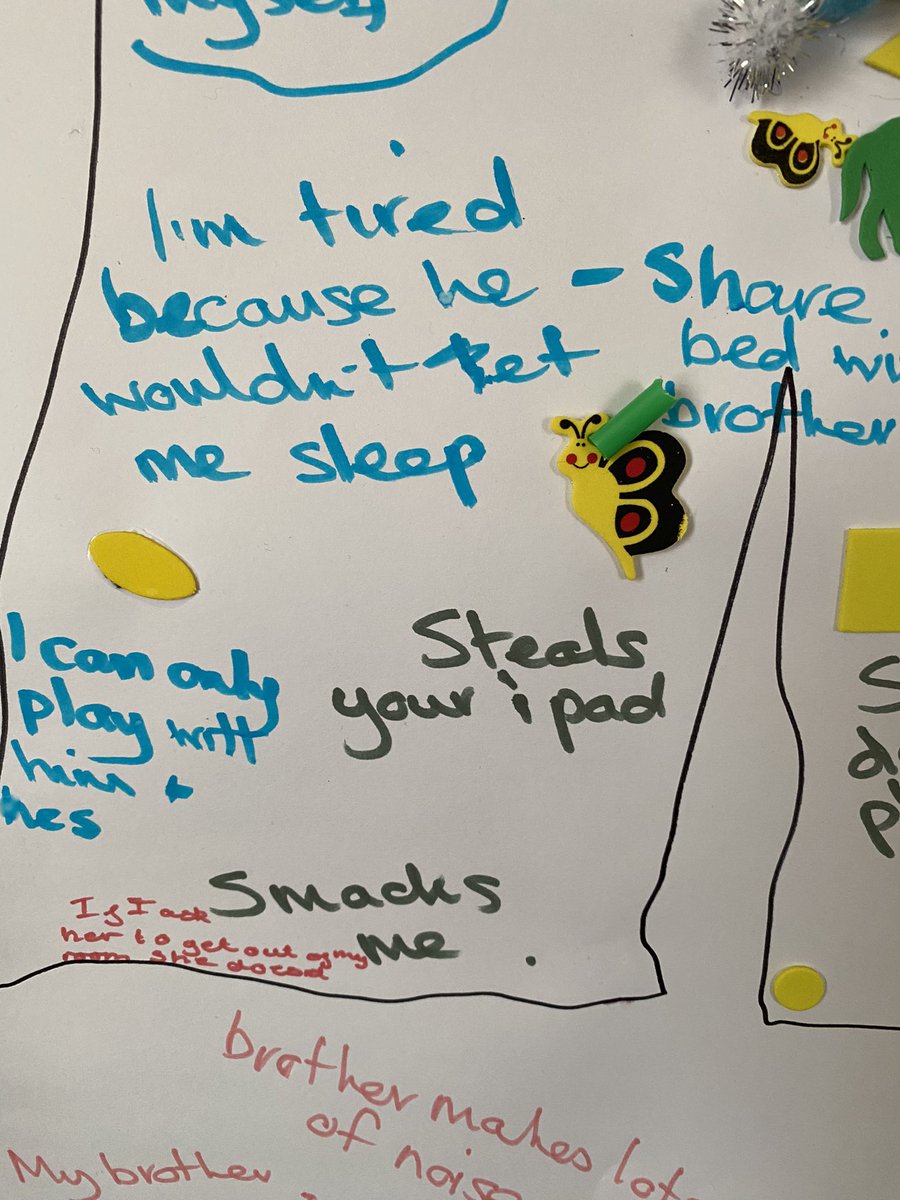 myself
I'm tired
because he - Share
wouldn't let bed wi
me sleep brother
I can only
play with
him +
hes
Steals
your ipad
S
d
p
Smacks
me .
If I ask
her to get out of my
room she doesnt
brother makes lots
of noise
My brother